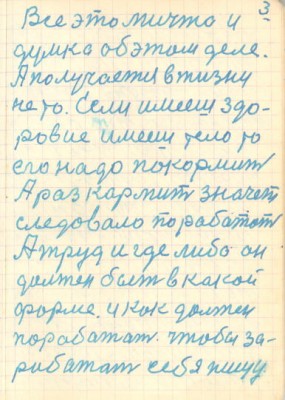 3
Все это мичта и
думка обэтом деле.
А получается в тизни
не то. Если имееш здо-
ровие имееш тело то
его надо покормит
А раз кармит значет
следовало порабатат
А труд игде либо он
должен быт в какой
форме. и как должен
порабатат. чтобы за-
рабатат себя пищу